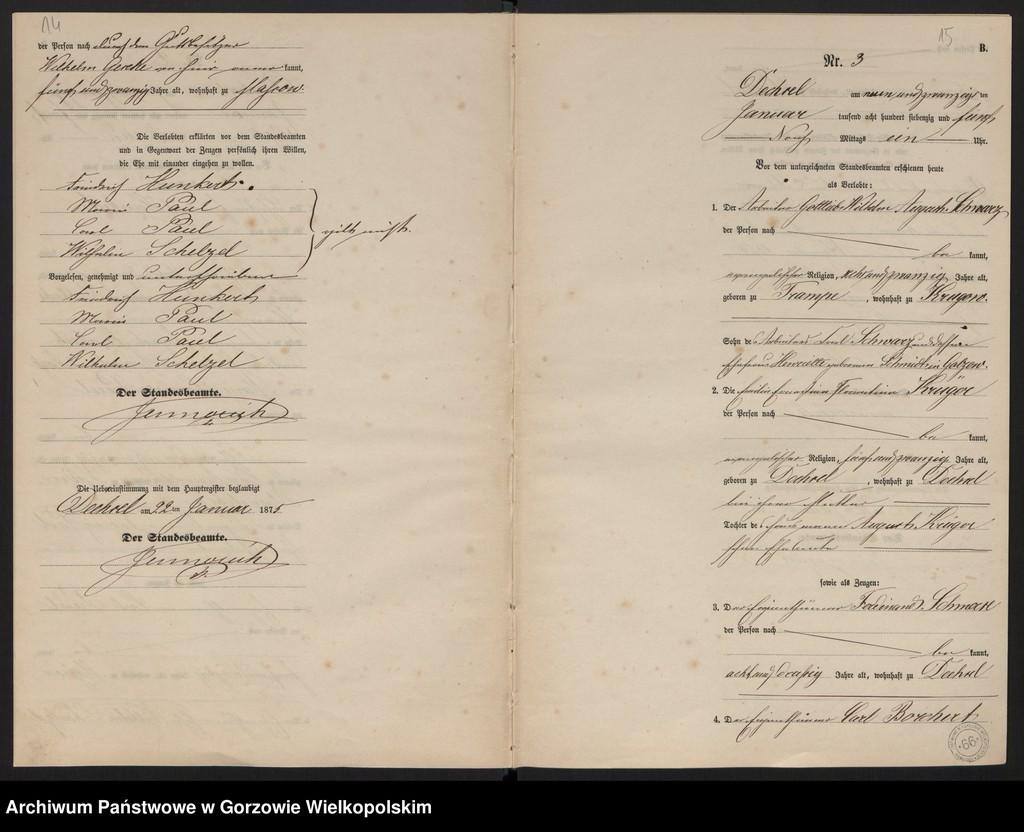 14
der Person nach durch den Gutsbesitzer
Wilhelm Gerike von hier aner kannt,
fünf und zwanzig Jahre alt, wohnhaft zu Massow.
Die Verlobten erklärten vor dem Standesbeamten
und in Gegenwart der Zeugen persönlich ihren Willen,
die Ehe mit einander eingehen zu wollen.
Friedrich Hunkert.
Marie Paul
Carl Paul
Wilhelm Schelzel
gilt nicht.
Vorgelesen, genehmigt und unterschrieben
Friedrich Hunkert
Marie Paul
Carl Paul
Wilhelm Schelzel
Der Standesbeamte.
Die Uebereinstimmung mit dem Hauptregister beglaubigt
Dechsel am 22ten Januar 1875.
Der Standesbeamte.
15
B.
Nr. 3
Dechsel am neun und zwanzig ten
Januar tausend acht hundert siebenzig und fünf
Nach Mittags ein Uhr.
Vor dem unterzeichneten Standesbeamten erschienen heute
als Verlobte:
1. Der Arbeiter Gottlieb Wilhelm August Schwarz
der Person nach
be kannt,
evangelischer Religion, und zwanzig Jahre alt,
geboren zu Trampe, wohnhaft zu Krügow.
Sohn des Arbeiters Carl Schwarz und dessen
Ehefrau Henriette geborenen Schmidt in
2. Die Ernestine Florentine Krüger
der Person nach
be kannt,
evangelischer Religion, fünf und zwanzig Jahre alt,
geboren zu Dechsel, wohnhaft zu Dechsel
bei ihrer Mutter
Tochter des August Krüger
sowie als Zeugen:
3. Der Eigenthümer Ferdinand Schmock
der Person nach
be kannt,
acht und dreißig Jahre alt, wohnhaft zu Dechsel
4. Der Eigenthümer Carl Borchert
66
Archiwum Państwowe w Gorzowie Wielkopolskim